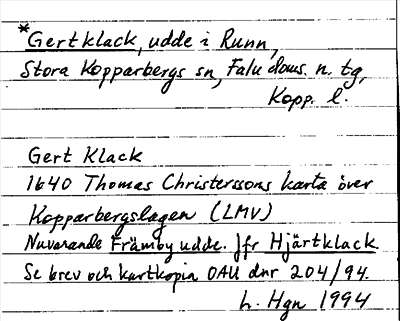 *Gertklack, udde i Runn,
Stora Kopparbergs sn, Falu doms. n. tg,
Kopp. l.
Gert Klack
1640 Thomas Christerssons karta över
Kopparbergslagen (LMV)
Nuvarande Främby udde. Jfr Hjärtklack.
Se brev och kartkopia OAU dnr 204/94.
L. Hgn 1994